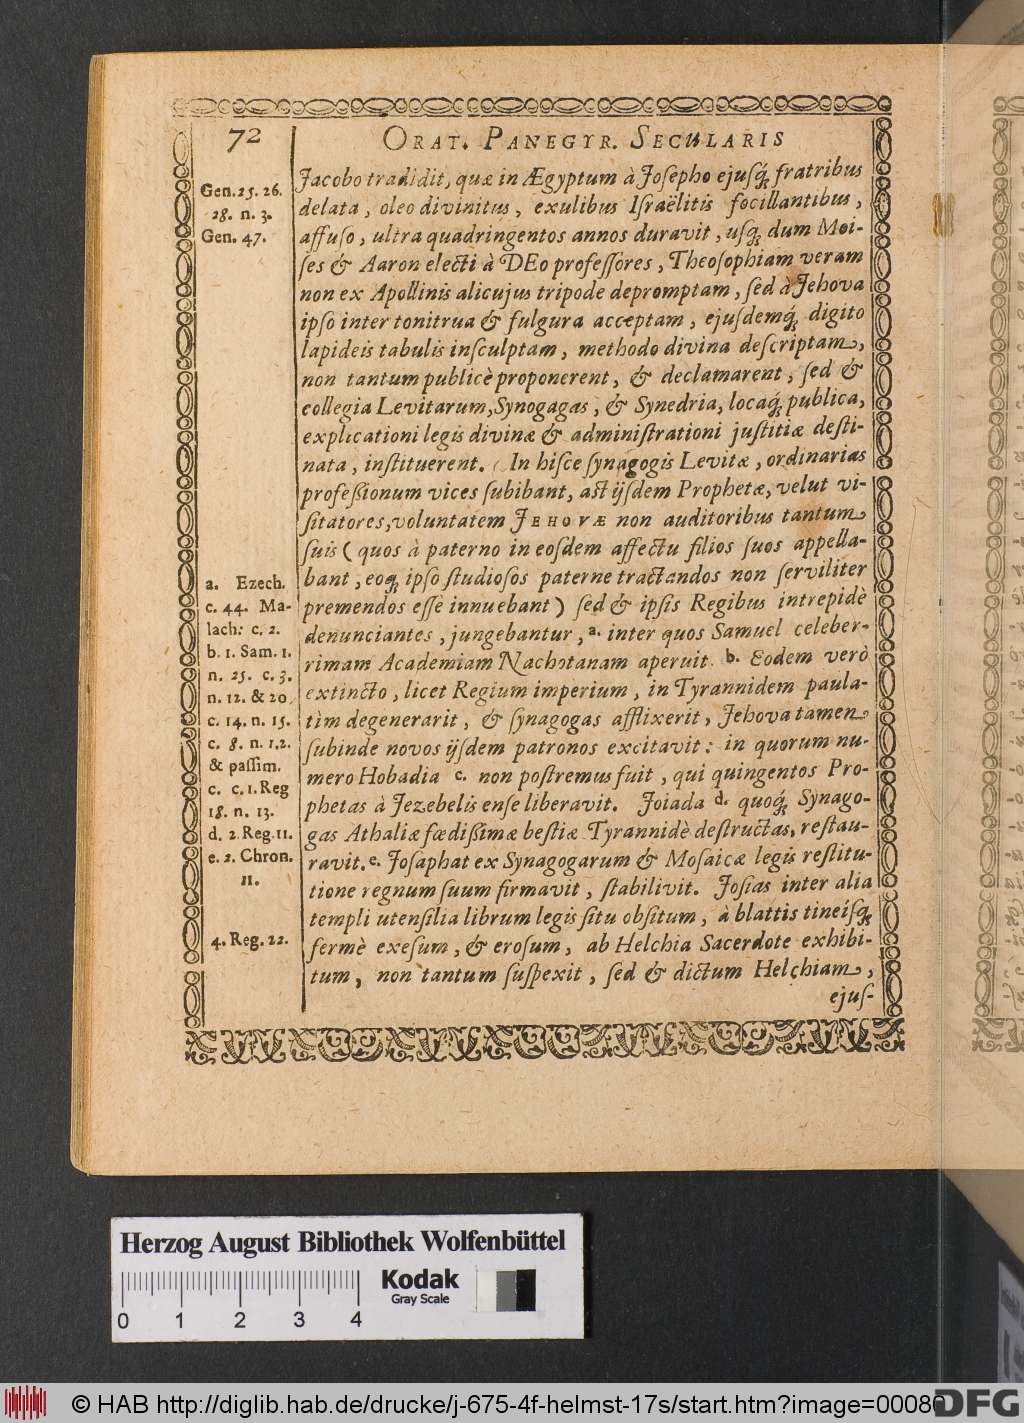 72
ORAT. PANEGYR. SECULARIS
Gen. 25. 26.
28. n. 3.
Gen. 47.
Jacobo tradidit, quæ in Ægyptum à Joſepho ejuſq́; fratribus
delata, oleo divinitus, exulibus Iſraëlitis focillantibus,
affuſo, ultra quadringentos annos duravit, uſq; dum Moi-
ſes & Aaron electi à DEo profeſſores, Theoſophiam veram
non ex Apollinis alicujus tripode depromptam, ſed à Jehova
ipſo inter tonitrua & fulgura acceptam, ejuſdemq́; digito
lapideis tabulis inſculptam, methodo divina deſcriptam,
non tantum publicè proponerent, & declamarent, ſed &
collegia Levitarum, Synogagas, & Synedria, locaq́; publica,
explicationi legis divinæ & adminiſtrationi juſtitiæ deſti-
nata, inſtituerent. In hiſce ſynagogis Levitæ, ordinarias
profeßionum vices ſubibant, aſt ijſdem Prophetæ, velut vi-
ſitatores, voluntatem JEHOVÆ non auditoribus tantum
ſuis ( quos à paterno in eoſdem affectu filios ſuos appella-
bant, eoq; ipſo ſtudioſos paterne tractandos non ſerviliter
premendos eſſè innuebant) ſed & ipſis Regibus intrepidè
denunciantes, jungebantur, a. inter quos Samuel celeber-
rimam Academiam Nachotanam aperuit. b. Eodem verò
extincto, licet Regium imperium, in Tyrannidem paula-
tìm degenerarit, & ſynagogas afflixerit, Jehova tamen
ſubinde novos ijſdem patronos excitavit: in quorum nu-
mero Hobadia c. non poſtremus fuit, qui quingentos Pro-
phetas à Jezebelis enſe liberavit. Joiada d. quoq́; Synago-
gas Athaliæ fœdißimæ beſtiæ Tyrannidè deſtructas, reſtau-
ravit. e. Joſaphat ex Synagogarum & Moſaicæ legis reſtitu-
tione regnum ſuum firmavit, ſtabilivit. Joſias inter alia
templi utenſilia librum legis ſitu obſitum, à blattis tineíſq;
fermè exeſum, & eroſum, ab Helchia Sacerdote exhibi-
tum, non tantum ſuſpexit, ſed & dictum Helchiam,
ejuſ-
a. Ezech.
c. 44. Ma-
lach: c. 2.
b. 1. Sam. 1.
n. 25. c. 3.
n. 12. & 20
c. 14. n. 15.
c. 8. n. 1.2.
& paſſim.
c. c. 1. Reg
18. n. 13.
d. 2. Reg. 11.
e. 2. Chron.
11.
4. Reg. 22.
Herzog August Bibliothek Wolfenbüttel
Kodak
Gray Scale
0 1 2 3 4
© HAB http://diglib.hab.de/drucke/j-675-4f-helmst-17s/start.htm?image=00080
DFG